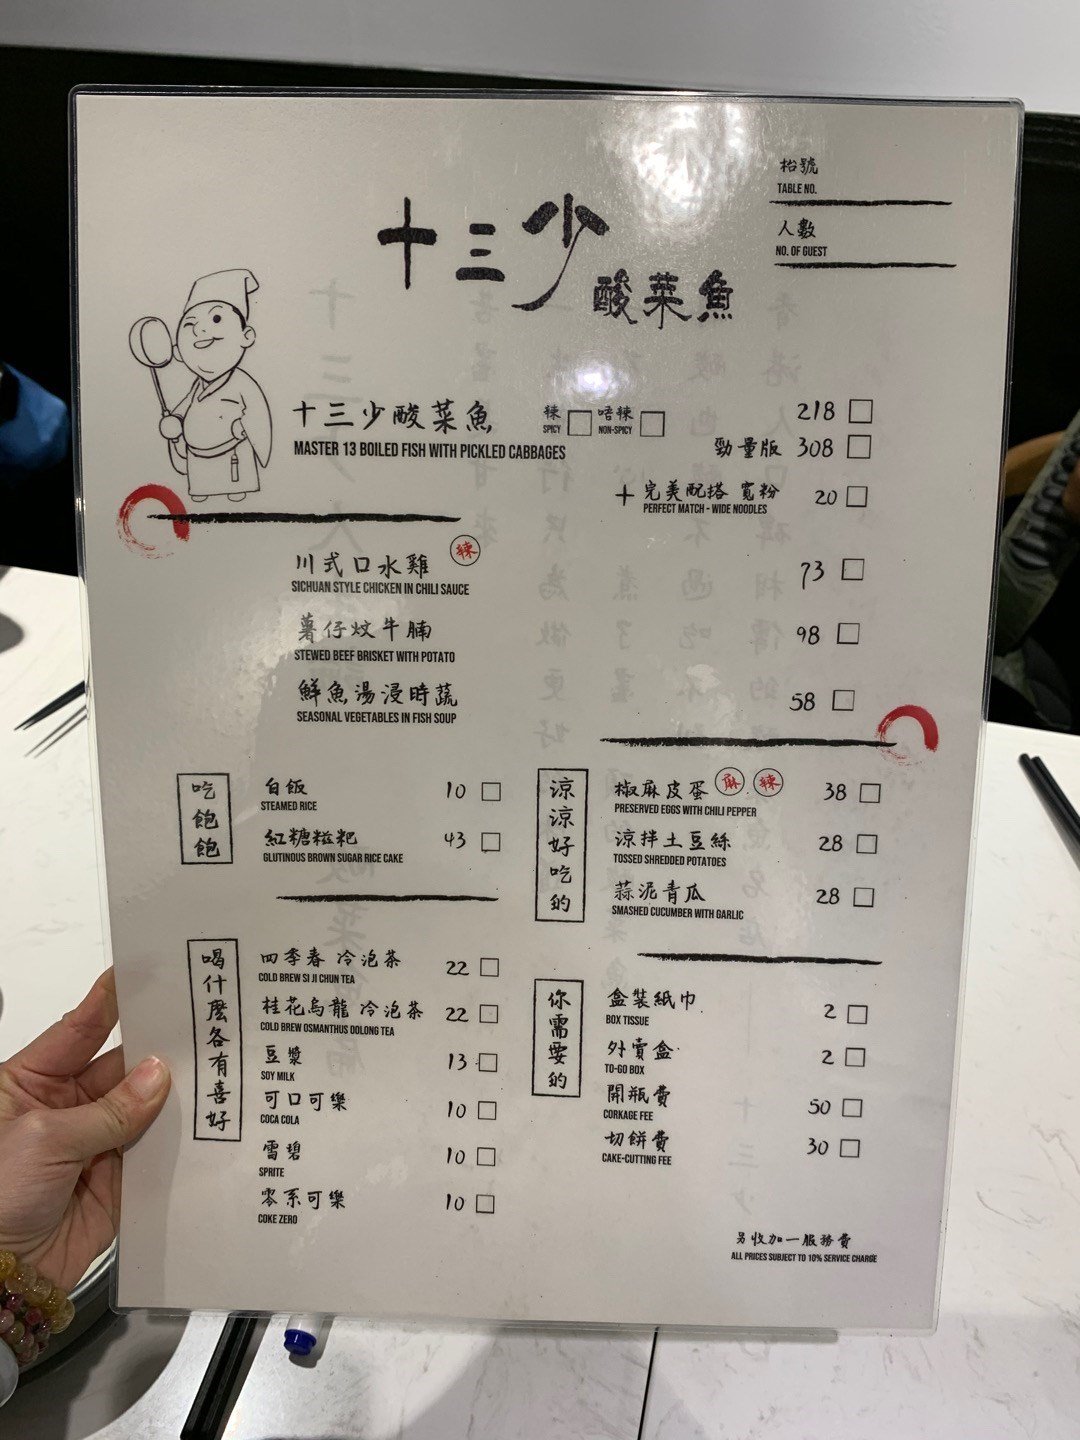 枱號
TABLE NO.
人數
NO. OF GUEST
十三少
酸菜魚
十三少酸菜魚 辣 唔辣 218
SPICY NON-SPICY
MASTER 13 BOILED FISH WITH PICKLED CABBAGES
勁量版 308
+ 完美配搭 寬粉 20
PERFECT MATCH - WIDE NOODLES
川式口水雞 辣 73
SICHUAN STYLE CHICKEN IN CHILI SAUCE
薯仔炆牛腩 98
STEWED BEEF BRISKET WITH POTATO
鮮魚湯浸時蔬 58
SEASONAL VEGETABLES IN FISH SOUP
吃飽飽
白飯 10
STEAMED RICE
紅糖糍粑 43
GLUTINOUS BROWN SUGAR RICE CAKE
涼涼好吃的
椒麻皮蛋 麻 辣 38
PRESERVED EGGS WITH CHILI PEPPER
涼拌土豆絲 28
TOSSED SHREDDED POTATOES
蒜泥青瓜 28
SMASHED CUCUMBER WITH GARLIC
喝什麼各有喜好
四季春 冷泡茶 22
COLD BREW SI JI CHUN TEA
桂花烏龍 冷泡茶 22
COLD BREW OSMANTHUS OOLONG TEA
豆漿 13
SOY MILK
可口可樂 10
COCA COLA
雪碧 10
SPRITE
零系可樂 10
COKE ZERO
你需要的
盒裝紙巾 2
BOX TISSUE
外賣盒 2
TO-GO BOX
開瓶費 50
CORKAGE FEE
切餅費 30
CAKE-CUTTING FEE
另收加一服務費
ALL PRICES SUBJECT TO 10% SERVICE CHARGE